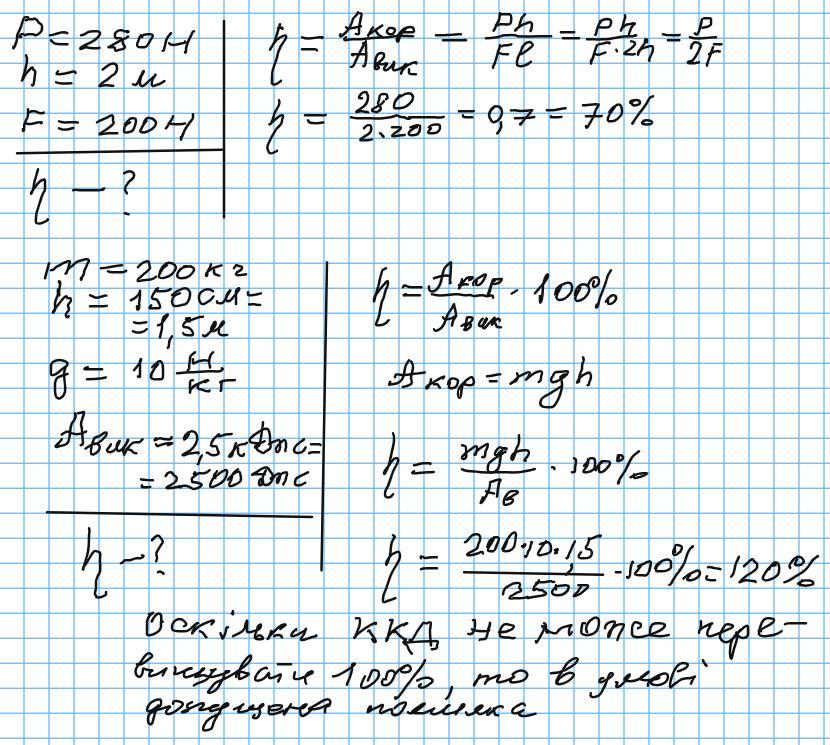 P = 280Н
h = 2 м
F = 200Н
η — ?
η = Aкор/Aвик = Ph/Fl = Ph/F·2h = P/2F
η = 280/2·200 = 0,7 = 70%
m = 200кг
h = 150см =
= 1,5м
g = 10 Н/кг
Aвик = 2,5кДж =
= 2500Дж
η – ?
η = Aкор/Aвик · 100%
Aкор = mgh
η = mgh/Aв · 100%
η = 200·10·1,5/2500 · 100% = 120%
Оскільки ККД не може пере-
вищувати 100%, то в умові
допущена помилка